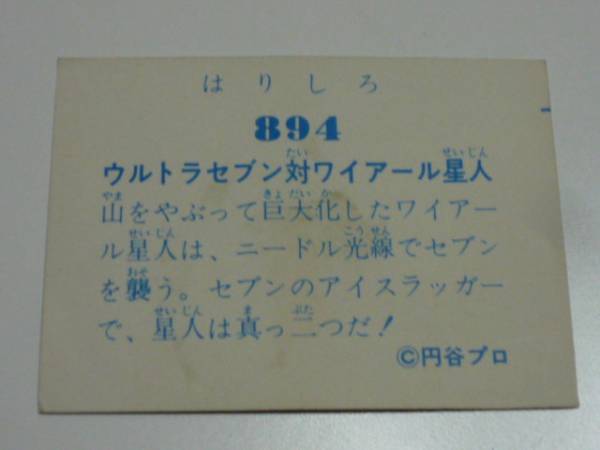 はりしろ
894
ウルトラセブン対ワイアール星人
山をやぶって巨大化したワイアー
ル星人は、ニードル光線でセブン
を襲う。セブンのアイスラッガー
で、星人は真っ二つだ!
©円谷プロ